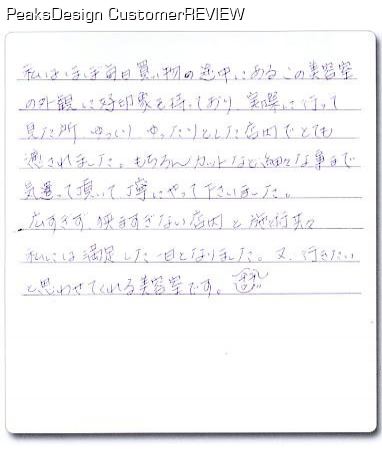 PeaksDesign CustomerREVIEW
私はほぼ毎日買い物の途中にあるこの美容室
の外観に好印象を持っており、実際に行って
見た所、ゆっくり ゆったりとした店内でとても
癒されました。もちろんカットなど細々な事まで
気遣って頂いて丁寧にやって下さいました。
広すぎず、狭ますぎない店内と施術等々
私には満足した一日となりました。又、行きたい
と思わせてくれる美容室です。